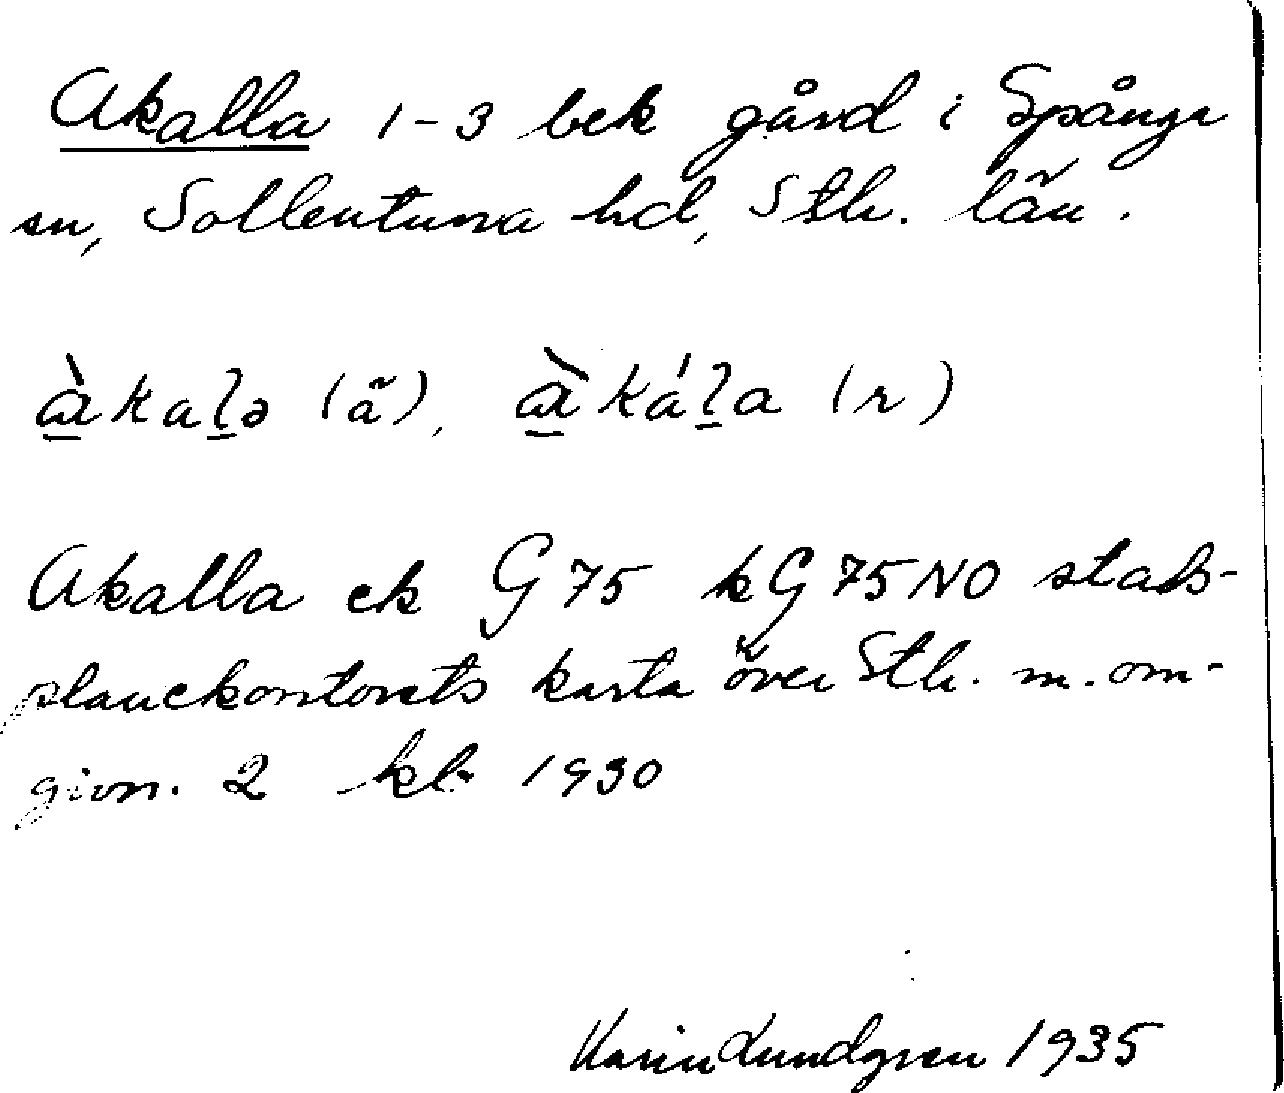 Akalla 1-3 bek gård i Spånga
sn, Sollentuna hd, Sth. län.
ɑ̠̀kaḻə (ä), ɑ̠̀káḻa (r)
Akalla ek G 75 kG 75 NO stads-
planekontorets karta över Sth. m. om-
givn. 2 kl. 1930
Karin Lundgren 1935